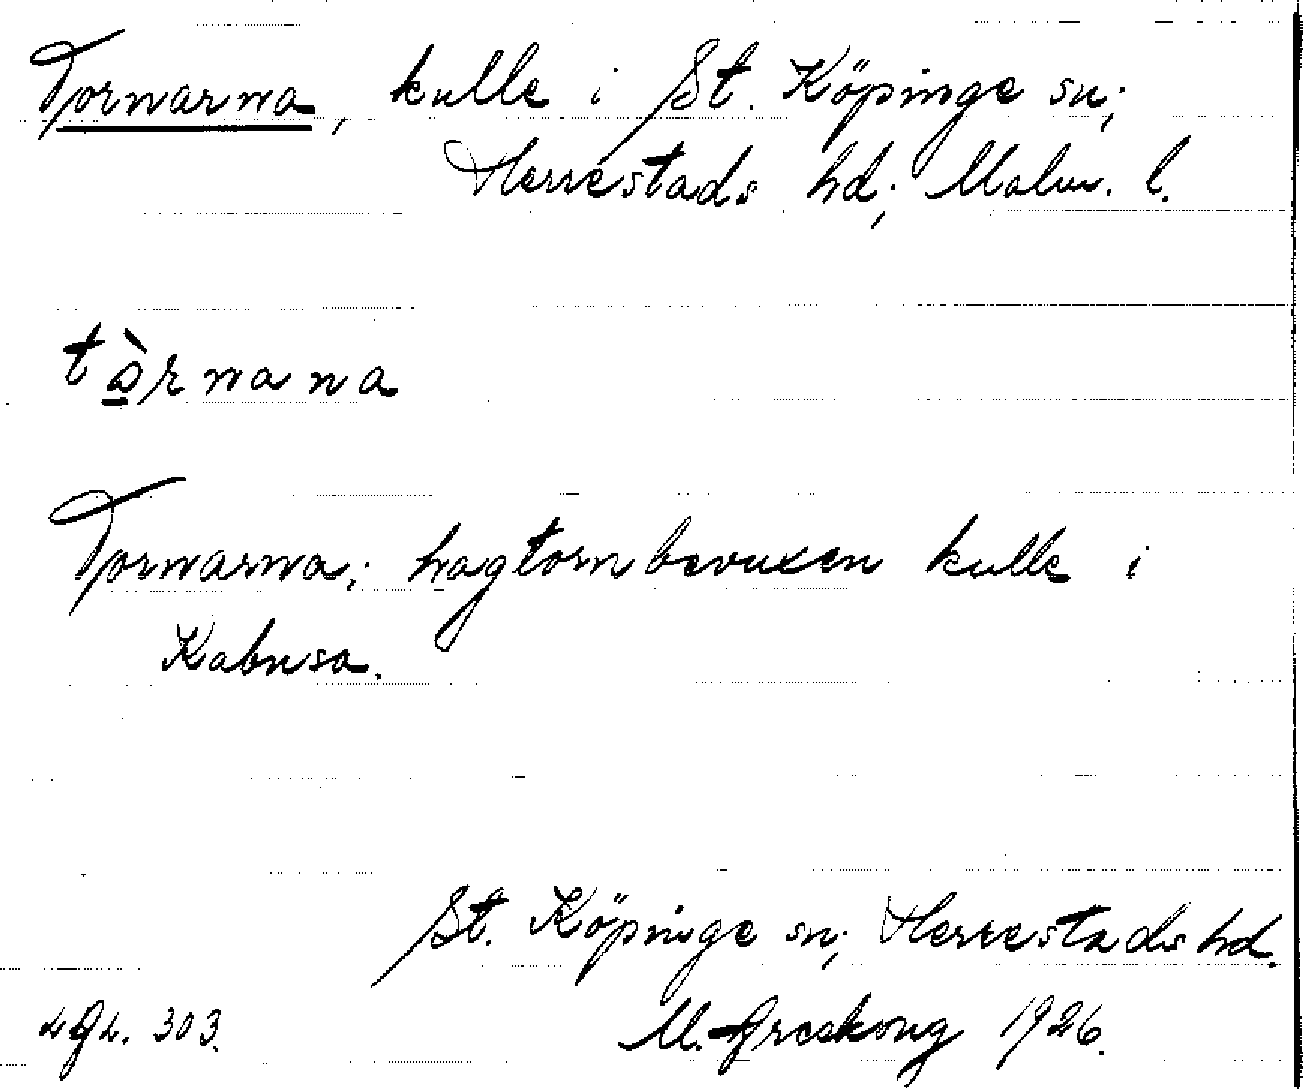 Tornarna, kulle i St. Köpinge sn;
Herrestads hd; Malm. l.
tò̱rnana
Tornarna; hagtornbevuxen kulle i
Kabusa.
St. Köpinge sn; Herrestads hd.
303. M. 1926.